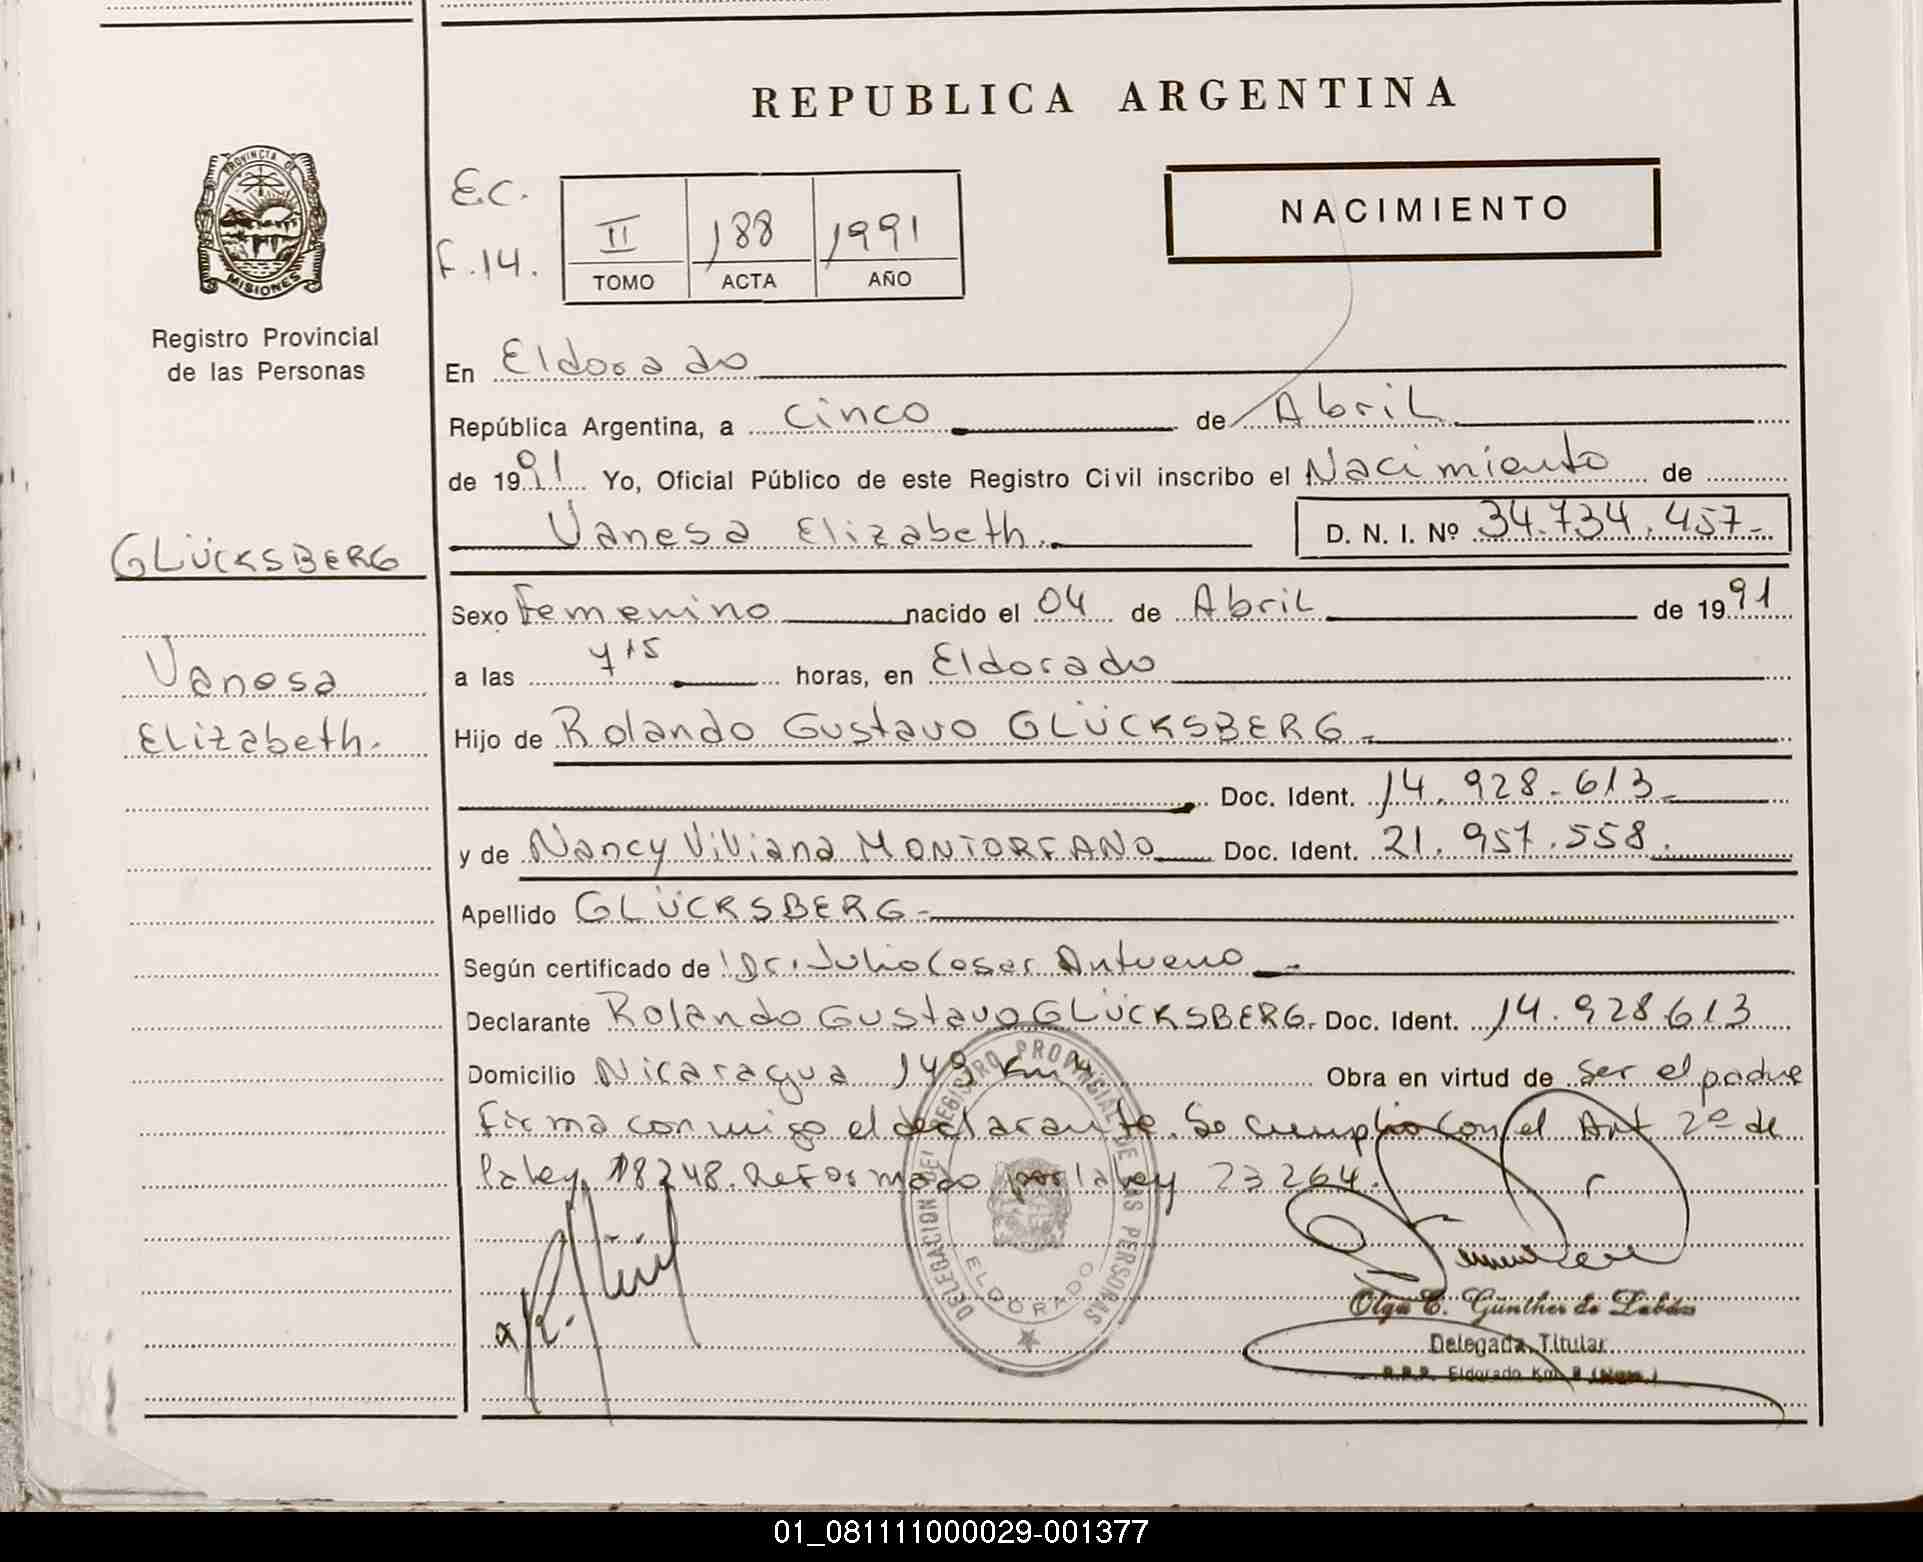 REPUBLICA ARGENTINA
PROVINCIA DE
MISIONES
Registro Provincial
de las Personas
E.C.
F.14.
II 188 1991
TOMO ACTA AÑO
NACIMIENTO
En Eldorado
República Argentina, a cinco de Abril
de 1991 Yo, Oficial Público de este Registro Civil inscribo el Nacimiento de
Vanesa Elizabeth. D. N. I. Nº 34.734.457-
GLÜCKSBERG
Vanesa
Elizabeth.
Sexo Femenino nacido el 04 de Abril de 1991
a las 7 15 horas, en Eldorado
Hijo de Rolando Gustavo GLÜCKSBERG-
Doc. Ident. 14.928.613-
y de Nancy Viviana MONTORFANO Doc. Ident. 21.957.558.
Apellido GLÜCKSBERG-
Según certificado de Dr. Julio Cesar
Declarante Rolando Gustavo GLÜCKSBERG. Doc. Ident. 14.928.613
Domicilio Nicaragua 149 Km Obra en virtud de ser el padre
firma conmigo el declarante. Se cumplio con el Art 2º de
la ley 18248. Reformado por la ley 23264.
DELEGACION DEL REGISTRO PROVINCIAL DE LAS PERSONAS
ELDORADO
Olga C. Günther de
Delegada Titular
R.P.P. Eldorado Km.
01_081111000029-001377